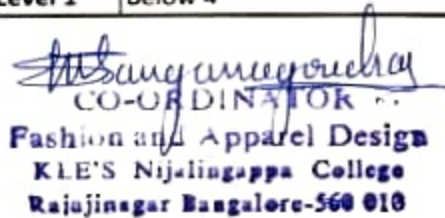 Level 1 Below 4
CO-ORDINATOR
Fashion and Apparel Design
KLE'S Nijalingappa College
Rajajinagar Bangalore-560 010